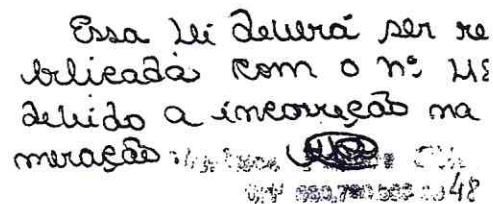 Essa Lei deverá ser re
blicada com o nº 48
devido a incorreção na
meração
48